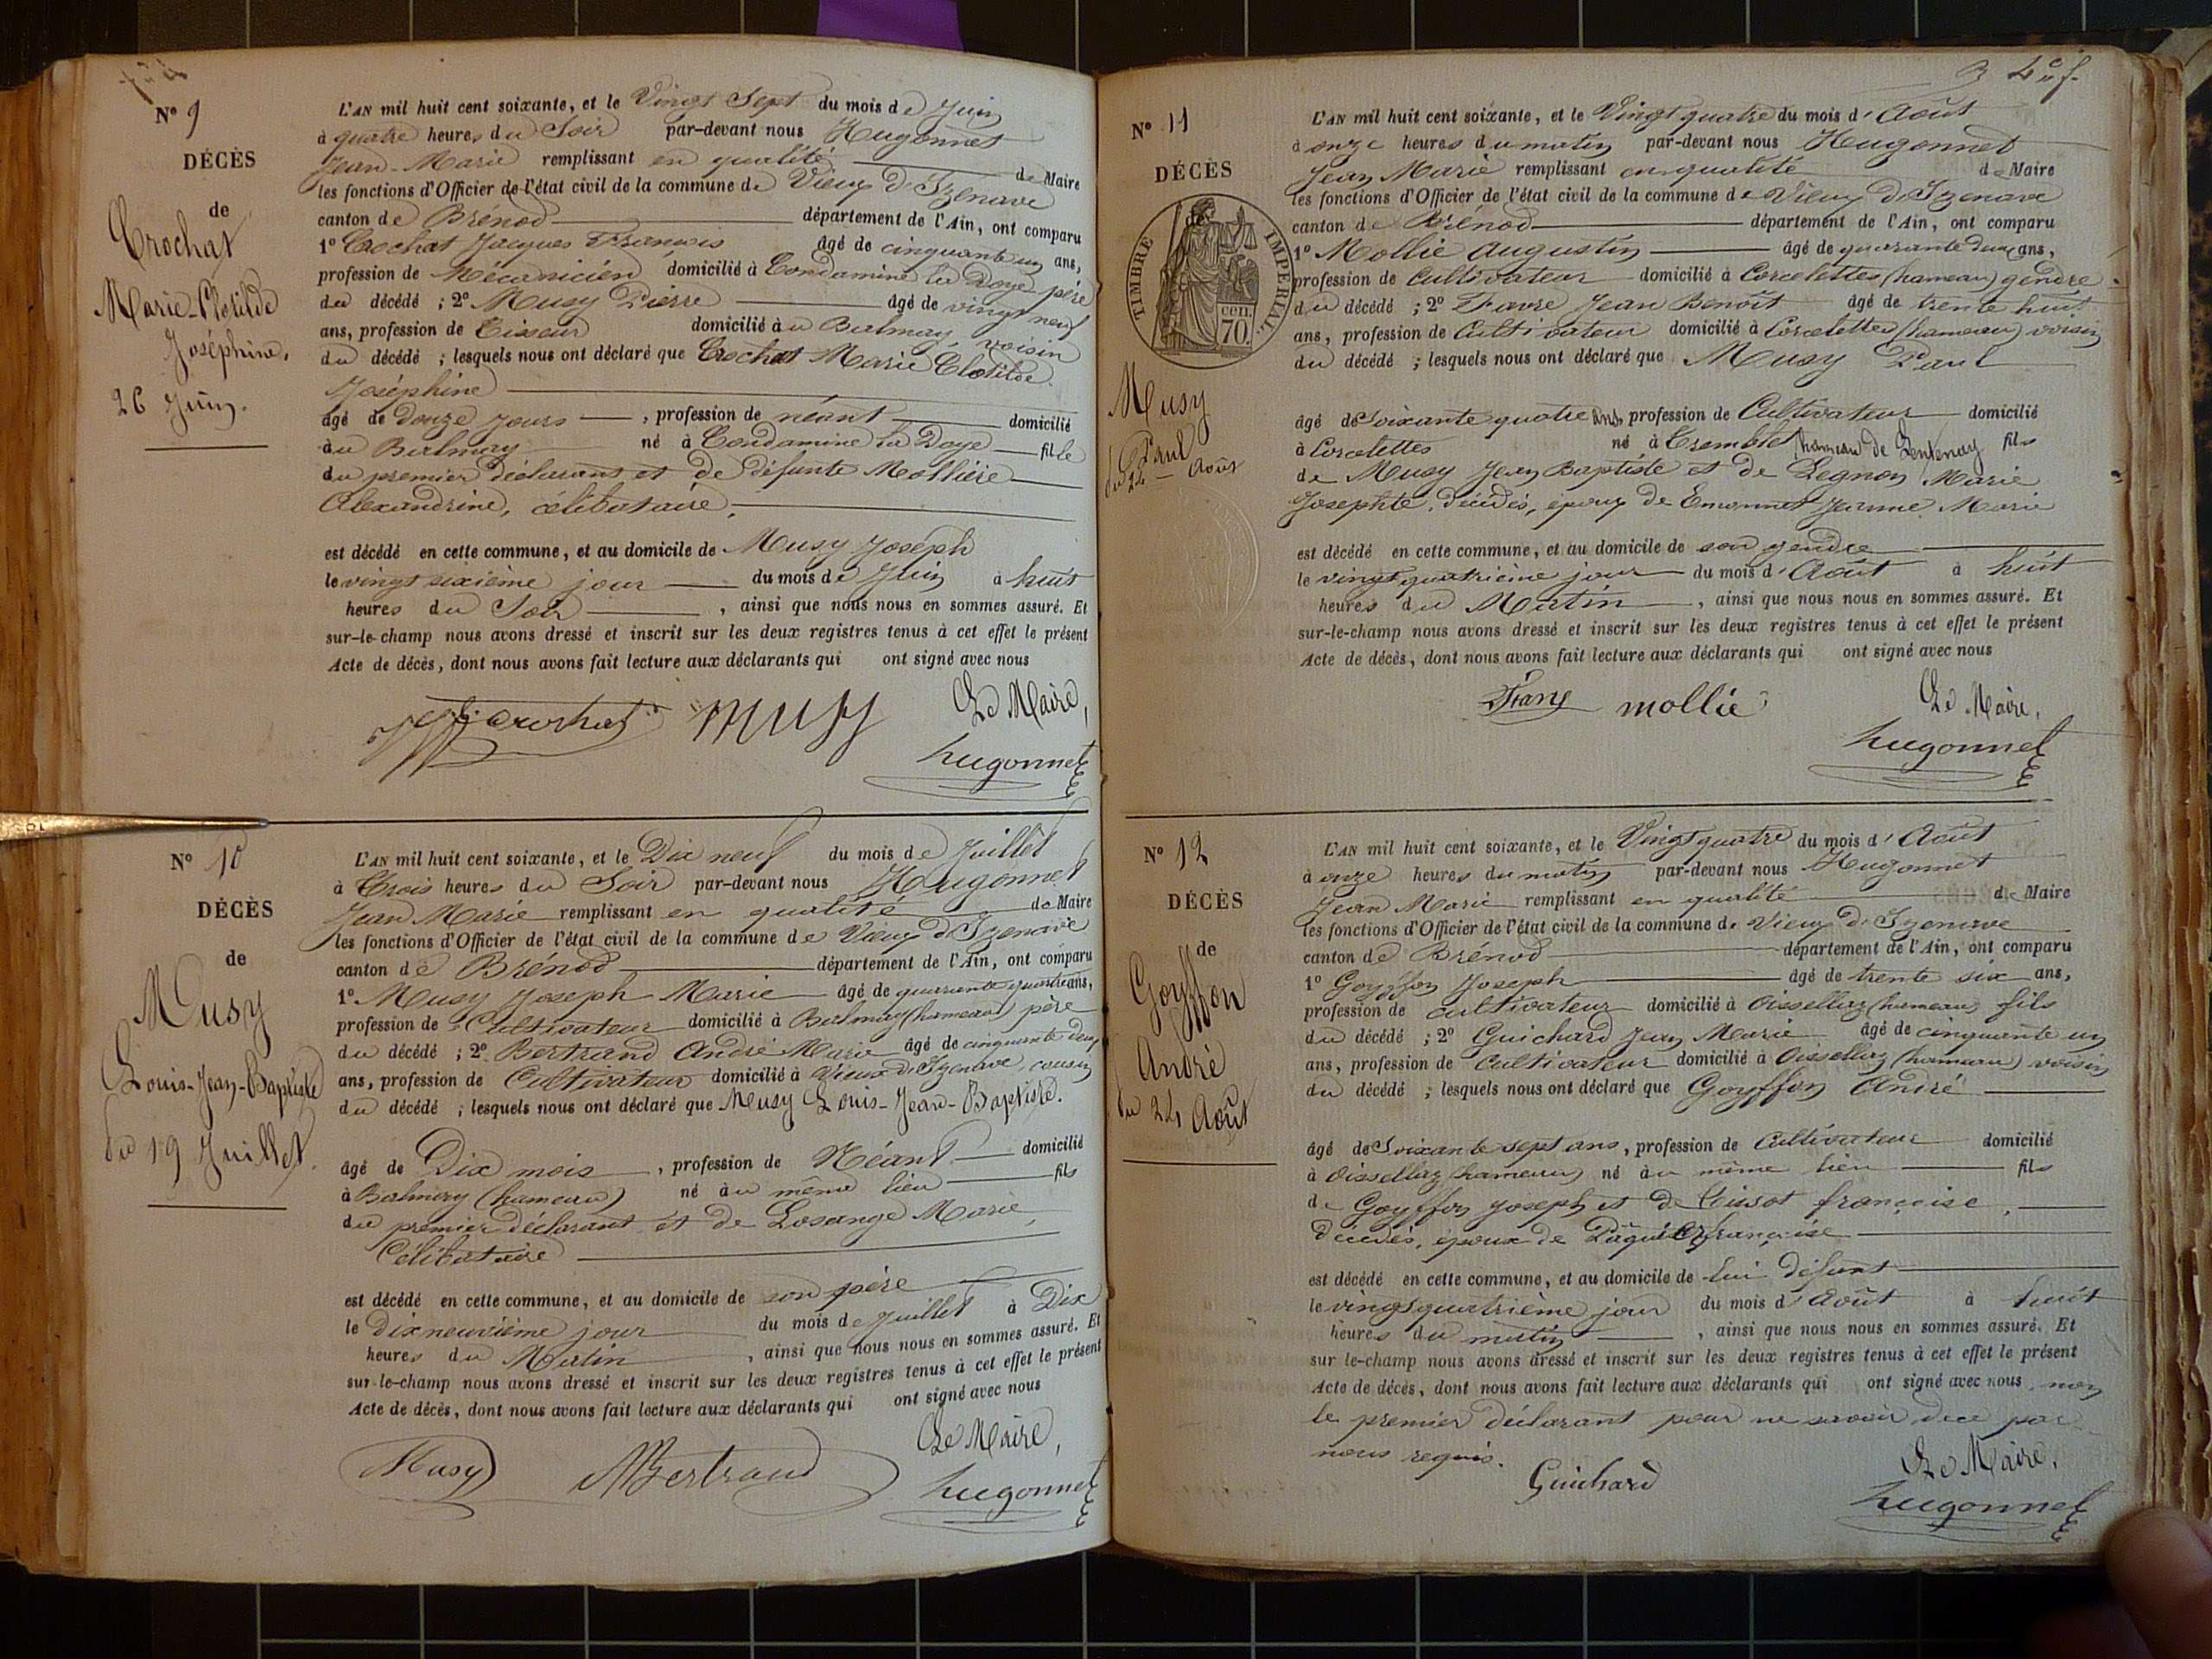 N° 9
DÉCÈS
de
Crochat
Marie-Clotilde
Joséphine,
26 Juin.
L'AN mil huit cent soixante, et le Vingt Sept du mois de Juin
à quatre heures du Soir par-devant nous Hugonnet
Jean Marie remplissant en qualité de Maire
les fonctions d'Officier de l'état civil de la commune de Vieux d'Izenave
canton de Brénod département de l'Ain, ont comparu
1° Crochat Jacques François âgé de cinquante un ans,
profession de Mécanicien domicilié à Condamine la Doye père
du décédé ; 2° Musy Pierre âgé de vingt neuf
ans, profession de Tisseur domicilié au Balmay, voisin
du décédé ; lesquels nous ont déclaré que Crochat Marie Clotilde
Joséphine
âgé de Douze jours , profession de néant domicilié
au Balmay né à Condamine la Doye fille
du premier déclarant et de défunte Mollière
Alexandrine, célibataire,
est décédé en cette commune, et au domicile de Musy Joseph
le vingt sixième jour du mois de Juin à huit
heures du Soir , ainsi que nous nous en sommes assuré. Et
sur-le-champ nous avons dressé et inscrit sur les deux registres tenus à cet effet le présent
Acte de décès, dont nous avons fait lecture aux déclarants qui ont signé avec nous
Crochat Musy Le Maire,
hugonnet
N° 10
DÉCÈS
de
Musy
Louis-Jean-Baptiste
du 19 Juillet.
L'AN mil huit cent soixante, et le Dix neuf du mois de Juillet
à Trois heures du Soir par-devant nous Hugonnet
Jean Marie remplissant en qualité de Maire
les fonctions d'Officier de l'état civil de la commune de Vieux d'Izenave
canton de Brénod département de l'Ain, ont comparu
1° Musy Joseph Marie âgé de quarante quatre ans,
profession de Cultivateur domicilié à Balmay (hameau) père
du décédé ; 2° Bertrand André Marie âgé de cinquante deux
ans, profession de Cultivateur domicilié à Vieux d'Izenave, cousin
du décédé ; lesquels nous ont déclaré que Musy Louis-Jean-Baptiste.
âgé de Dix mois , profession de Néant domicilié
à Balmay (hameau) né au même lieu fils
du premier déclarant et de Losange Marie,
Célibataire
est décédé en cette commune, et au domicile de son père
le Dix neuvième jour du mois de Juillet à Dix
heures du Matin , ainsi que nous nous en sommes assuré. Et
sur-le-champ nous avons dressé et inscrit sur les deux registres tenus à cet effet le présent
Acte de décès, dont nous avons fait lecture aux déclarants qui ont signé avec nous
Musy Bertrand Le Maire,
hugonnet
N° 11
DÉCÈS
de
TIMBRE IMPÉRIAL
70 cen.
Musy
Paul
du 24 Août
L'AN mil huit cent soixante, et le Vingt quatre du mois d'Août
à onze heures du matin par-devant nous Hugonnet
Jean Marie remplissant en qualité de Maire
les fonctions d'Officier de l'état civil de la commune de Vieux d'Izenave
canton de Brénod département de l'Ain, ont comparu
1° Mollie Augustin âgé de quarante deux ans,
profession de Cultivateur domicilié à Corcelettes (hameau) gendre
du décédé ; 2° Favre Jean Benoît âgé de trente huit
ans, profession de Cultivateur domicilié à Corcelettes (hameau) voisin
du décédé ; lesquels nous ont déclaré que Musy Paul
âgé de Soixante quatre ans, profession de Cultivateur domicilié
à Corcelettes né à Tremblet (hameau de Lentenay fils
de Musy Jean Baptiste et de Legnon Marie
Josephte, décédés, époux de Emonnet Jeanne Marie
est décédé en cette commune, et au domicile de son gendre
le vingt quatrième jour du mois d'Août à huit
heures du Matin , ainsi que nous nous en sommes assuré. Et
sur-le-champ nous avons dressé et inscrit sur les deux registres tenus à cet effet le présent
Acte de décès, dont nous avons fait lecture aux déclarants qui ont signé avec nous
mollie Le Maire,
hugonnet
N° 12
DÉCÈS
de
Goyffon
André
du 24 Août
L'AN mil huit cent soixante, et le Vingt quatre du mois d'Août
à onze heures du matin par-devant nous Hugonnet
Jean Marie remplissant en qualité de Maire
les fonctions d'Officier de l'état civil de la commune de Vieux d'Izenave
canton de Brénod département de l'Ain, ont comparu
1° Goyffon Joseph âgé de trente six ans,
profession de cultivateur domicilié à Oissellaz (hameau) fils
du décédé ; 2° Guichard Jean Marie âgé de cinquante un
ans, profession de Cultivateur domicilié à Oissellaz (hameau) voisin
du décédé ; lesquels nous ont déclaré que Goyffon André
âgé de Soixante sept ans, profession de Cultivateur domicilié
à Oissellaz (hameau) né au même lieu fils
de Goyffon Joseph et de Tissot françoise,
décédés, époux de françoise
est décédé en cette commune, et au domicile de lui défunt
le vingt quatrième jour du mois d'Août à huit
heures du matin , ainsi que nous nous en sommes assuré. Et
sur le-champ nous avons dressé et inscrit sur les deux registres tenus à cet effet le présent
Acte de décès, dont nous avons fait lecture aux déclarants qui ont signé avec nous, non
le premier déclarant pour ne savoir de ce par
nous requis.
Guichard Le Maire,
hugonnet